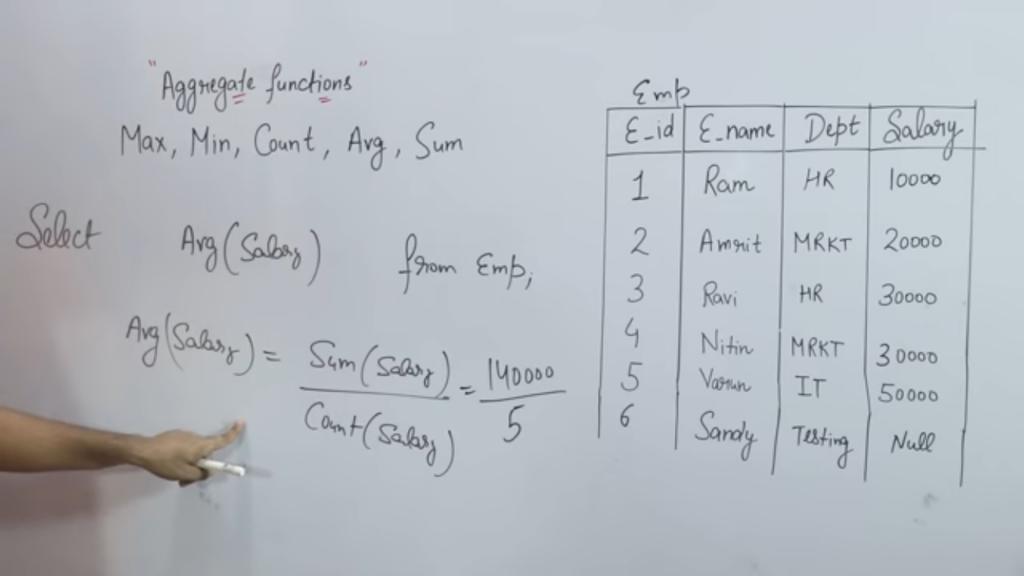 "Aggregate functions"
Max, Min, Count, Avg, Sum
Select Avg(Salary) from Emp;
Avg(Salary) = Sum(Salary) / Count(Salary) = 140000 / 5
Emp
E_id E_name Dept Salary
1 Ram HR 10000
2 Amrit MRKT 20000
3 Ravi HR 30000
4 Nitin MRKT 30000
5 Varun IT 50000
6 Sandy Testing Null